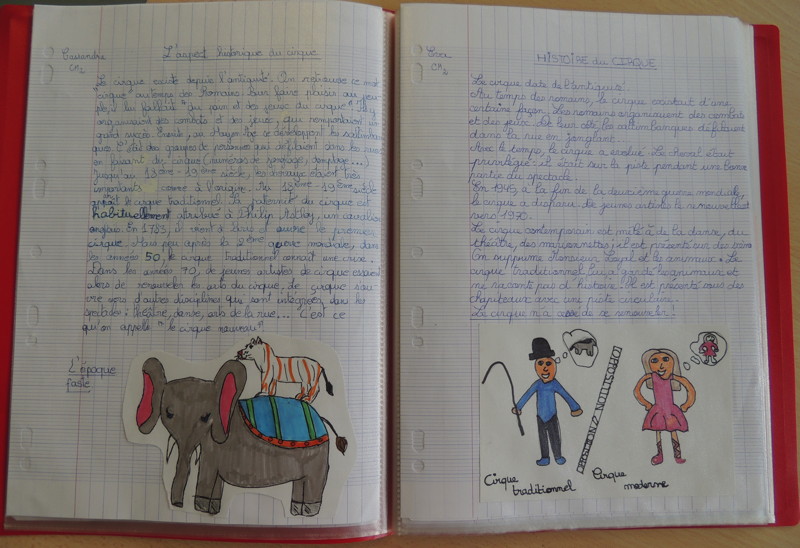 Cassandre
CM2
L'aspect historique du cirque
Le cirque existe depuis l'antiquité. On retrouve ce mot
"cirque" au temps des Romains. Pour faire plaisir au peu-
ple, il lui fallait "du pain et des jeux du cirque". Ils y
organisaient des combats et des jeux, qui remportaient un
grand succès. Ensuite, au Moyen Age se développent les saltimban-
ques. C'était des groupes de personnes qui défilaient dans les rues
en faisant du cirque (numéros de jonglage, domptage...)
Jusqu'au 13ème - 19ème siècle, les chevaux étaient très
importants comme à l'origine. Au 18ème - 19ème siècle
apparaît le cirque traditionnel. La paternité du cirque est
habituellement attribuée à Philip Astley, un cavalier
anglais. En 1783, il vient à Paris et ouvre le premier
cirque. Mais peu après la 2ème guerre mondiale, dans
les années 50, le cirque traditionnel connaît une crise.
Dans les années 70, de jeunes artistes de cirque essaient
alors de renouveler les arts du cirque. Le cirque s'ou
vre vers d'autres disciplines qui sont intégrées dans les
spectacles : théâtre, danse, arts de la rue,... C'est ce
qu'on appelle "le cirque nouveau"!
L'époque
faste
CM2
HISTOIRE du CIRQUE
Le cirque date de l'antiquité.
Au temps des romains, le cirque existait d'une
certaine façon. Les romains organisaient des combats
et des jeux. De leur côté, les saltimbanques défilaient
dans la rue en jonglant.
Avec le temps, le cirque a évolué. Le cheval était
privilégié : il était sur la piste pendant une bonne
partie du spectacle.
En 1945, à la fin de la deuxième guerre mondiale,
le cirque a disparu. De jeunes artistes le renouvellent
vers 1970.
Le cirque contemporain est mêlé à de la danse, du
théâtre, des marionnettes ; il est présenté sur des scènes
On supprime Monsieur Loyal et les animaux. Le
cirque traditionnel lui, garde les animaux et
ne raconte pas d'histoire. Il est présenté sous des
chapiteaux avec une piste circulaire.
Le cirque n'a cessé de se renouveler !
Cirque
traditionnel
Cirque
moderne